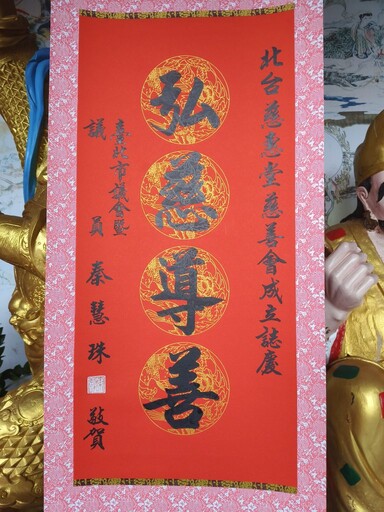 北台慈惠堂慈善會成立誌慶
弘慈導善
臺北市議會暨
議員秦慧珠敬賀